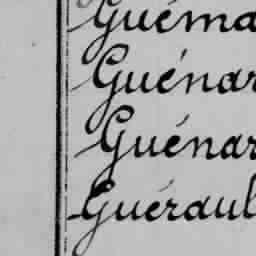 Guéma
Guénar
Guénar
Guéraul